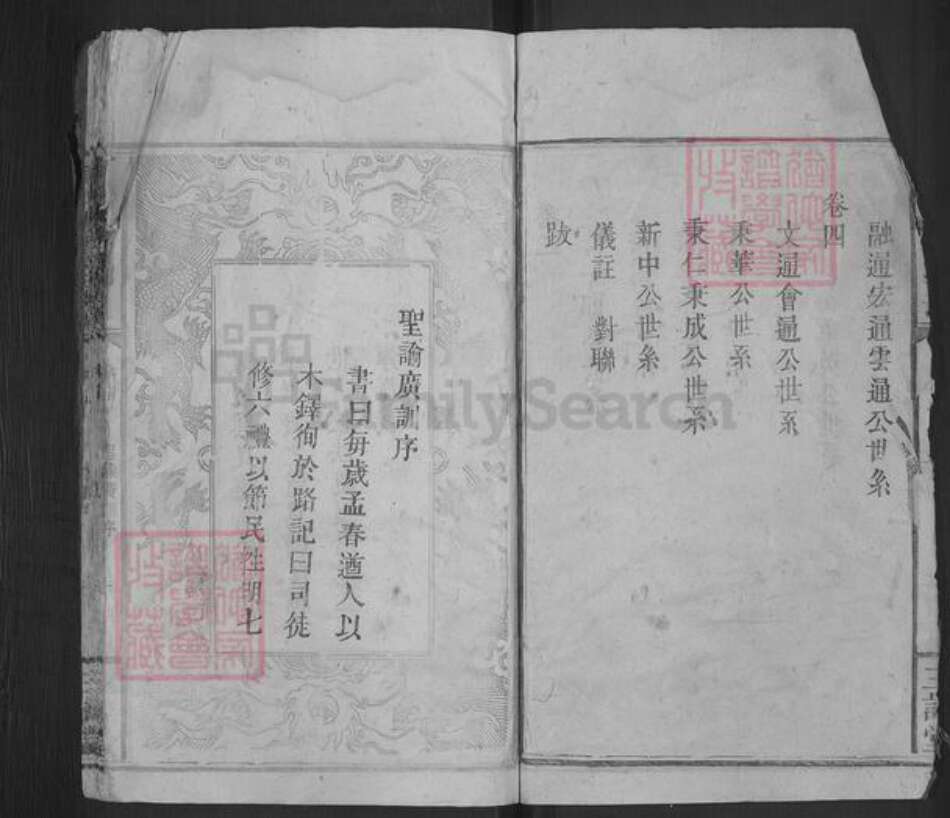 融通宏通雲通公世系
卷四
文通會通公世系
秉華公世系
秉仁秉成公世系
新中公世系
儀註 對聯
跋
聖諭廣訓序
書曰每歲孟春遒人以
木鐸徇於路記曰司徒
修六禮以節民性明七
FamilySearch